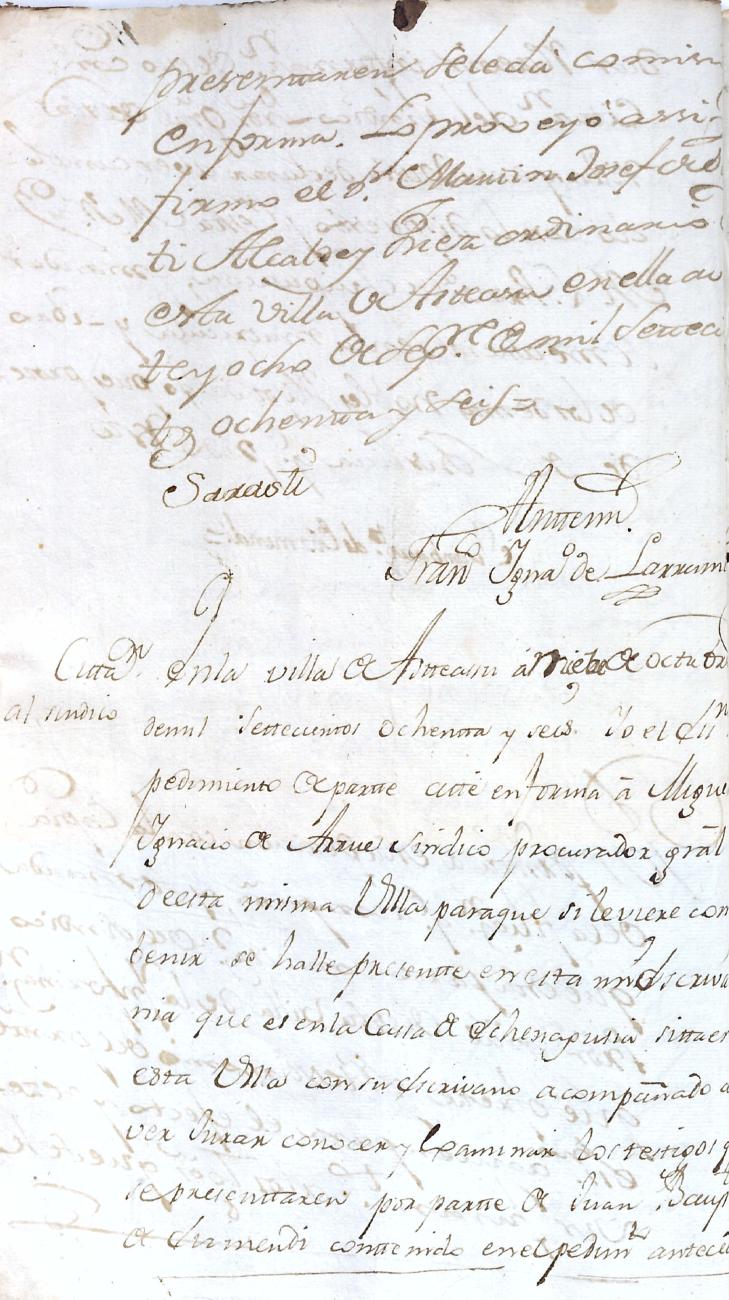 presenttaren se le da comis
en forma. Lo proveyo assi
firmo el Sr. Martin Josef de
ti Alcalde y Juez ordinario
esta villa de Asteasu en ella a
te y ocho de Sepre. de mil settec
tos ochentta y seis=
Sarasti
Antemi
Franco Ignao de Larrum
Cittan. en la villa de Asteasu á de octubr
al sindico
de mil settecientos ochentta y seis. Yo el
pedimiento de partte citté en forma â Migue
Ignacio de Arrue Sindico procurador gral
de esta misma Villa para que si le viere con
benir se halle presentte en esta mi Escriva
nia que es en la Cassa de Echenagusia sitta e
esta Villa con su Escrivano acompañado a
ver Jurar conocer y Examinar los testigos q
se presenttaren por partte de Juan Baup
de conttenido en el pedimto antece